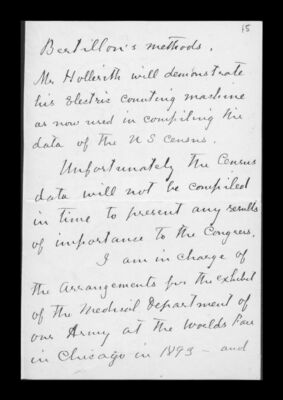 15
Bertillon's methods.
Mr Hollerith will demonstrate
his Electric counting machine
as now used in compiling the
data of the U S Census.
Unfortunately the Census
data will not be compiled
in time to present any results
of importance to the Congress.
I am in charge of
the arrangements for the exhibit
of the Medical Department of
our Army at the Worlds Fair
in Chicago in 1893 - and